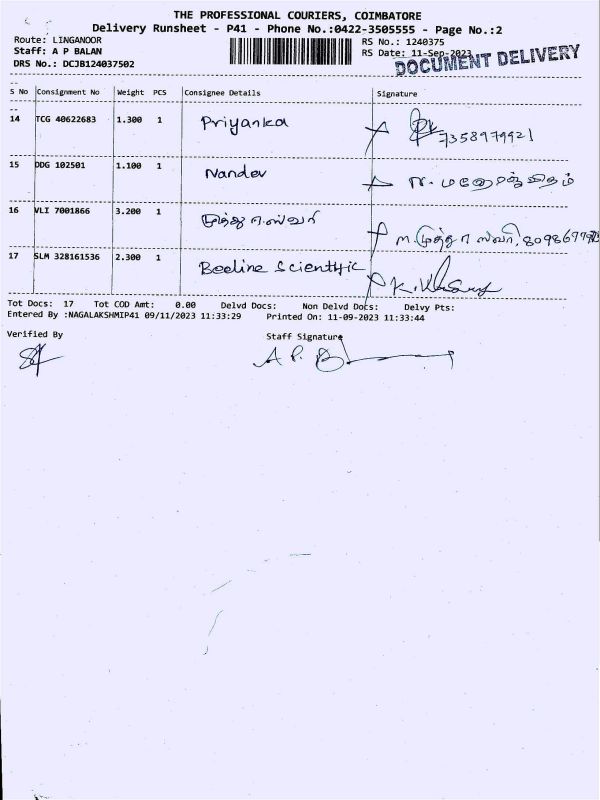 THE PROFESSIONAL COURIERS, COIMBATORE
Delivery Runsheet - P41 - Phone No.:0422-3505555 - Page No.:2
Route: LINGANOOR RS No.: 1240375
Staff: A P BALAN RS Date: 11-Sep-2023
DRS No.: DCJB124037502 DOCUMENT DELIVERY
S No Consignment No Weight PCS Consignee Details Signature
14 TCG 40622683 1.300 1 Priyanka 7358979921
15 DDG 102501 1.100 1 Nandev
16 VLI 7001866 3.200 1
17 SLM 328161536 2.300 1 Beeline Scientific
Tot Docs: 17 Tot COD Amt: 0.00 Delvd Docs: Non Delvd Docs: Delvy Pts:
Entered By :NAGALAKSHMIP41 09/11/2023 11:33:29 Printed On: 11-09-2023 11:33:44
Verified By Staff Signature
A P. B